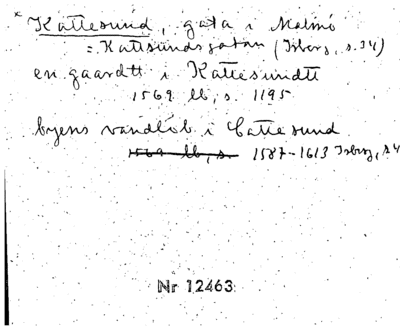 * Kattesund, gata i Malmö
= Kattsundsgatan (Isberg, s. 34)
en gaardtt i Kattesundtt
1569 lb, s. 1195
byens vandløb i Cattesund
1569 lb, s. 1587-1613 Isberg, s. 4
Nr 12463